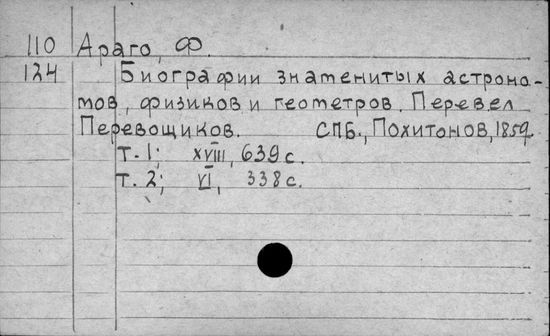 110 Араго, Ф.
124 Биографии знаменитых астроно-
мов, физиков и геометров. Перевел
Перевощиков. СПБ., Похитонов, 1859.
Т. 1; XVIII, 639 с.
Т. 2; VI, 338 с.